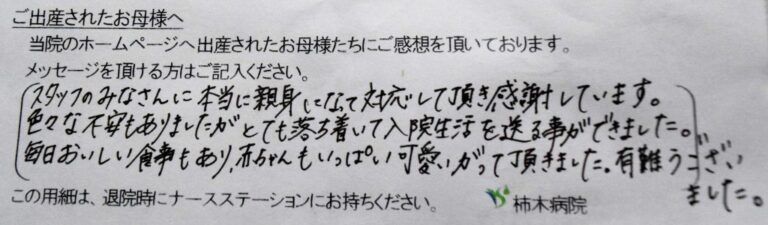 ご出産されたお母様へ
当院のホームページへ出産されたお母様たちにご感想を頂いております。
メッセージを頂ける方はご記入ください。
スタッフのみなさんに本当に親身になって対応して頂き感謝しています。
色々な不安もありましたがとても落ち着いて入院生活を送る事ができました。
毎日おいしい食事もあり、赤ちゃんもいっぱい可愛いがって頂きました。有難うござい
ました。
この用細は、退院時にナースステーションにお持ちください。
柿木病院